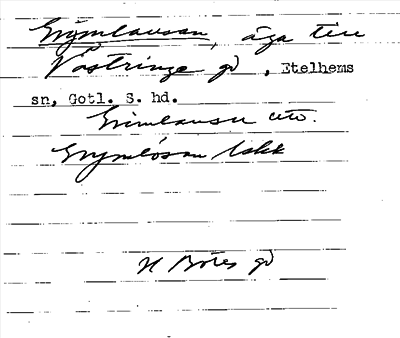 Grymlausan, äga till
Västringe gd, Etelhems
sn, Gotl. S. hd.
Grimlausu utv.
Grymlösan lokk
N Botes gd